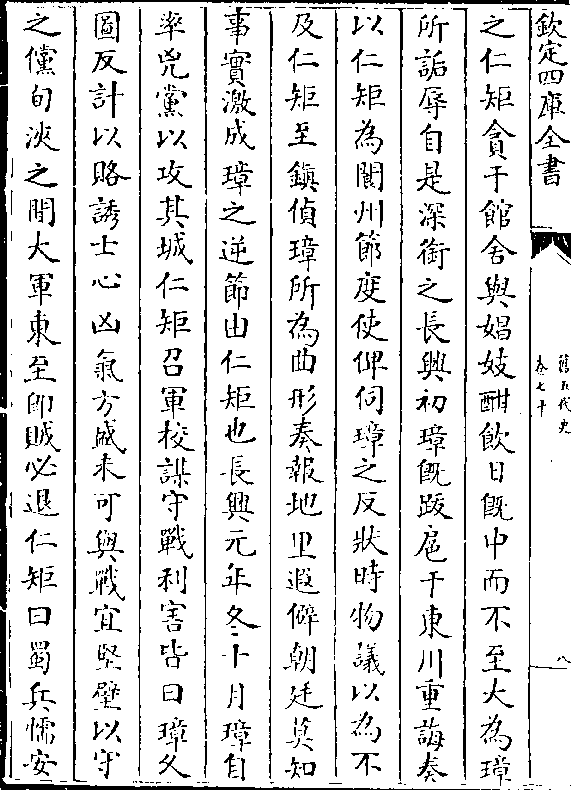 欽定四庫全書
舊五代史
卷七十
八
之仁矩貪于館舍與娼妓酣飲日既中而不至大為璋
所詬辱自是深銜之長興初璋既跋扈于東川重誨奏
以仁矩為閬州節度使俾伺璋之反狀時物議以為不
及仁矩至鎮偵璋所為曲形奏報地里遐僻朝廷莫知
事實激成璋之逆節由仁矩也長興元年冬十月璋自
率兇黨以攻其城仁矩召軍校謀守戰利害皆曰璋久
圖反計以賂誘士心凶氣方盛未可與戰宜堅壁以守
之儻旬浹之間大軍東至即賊必退仁矩曰蜀兵懦安